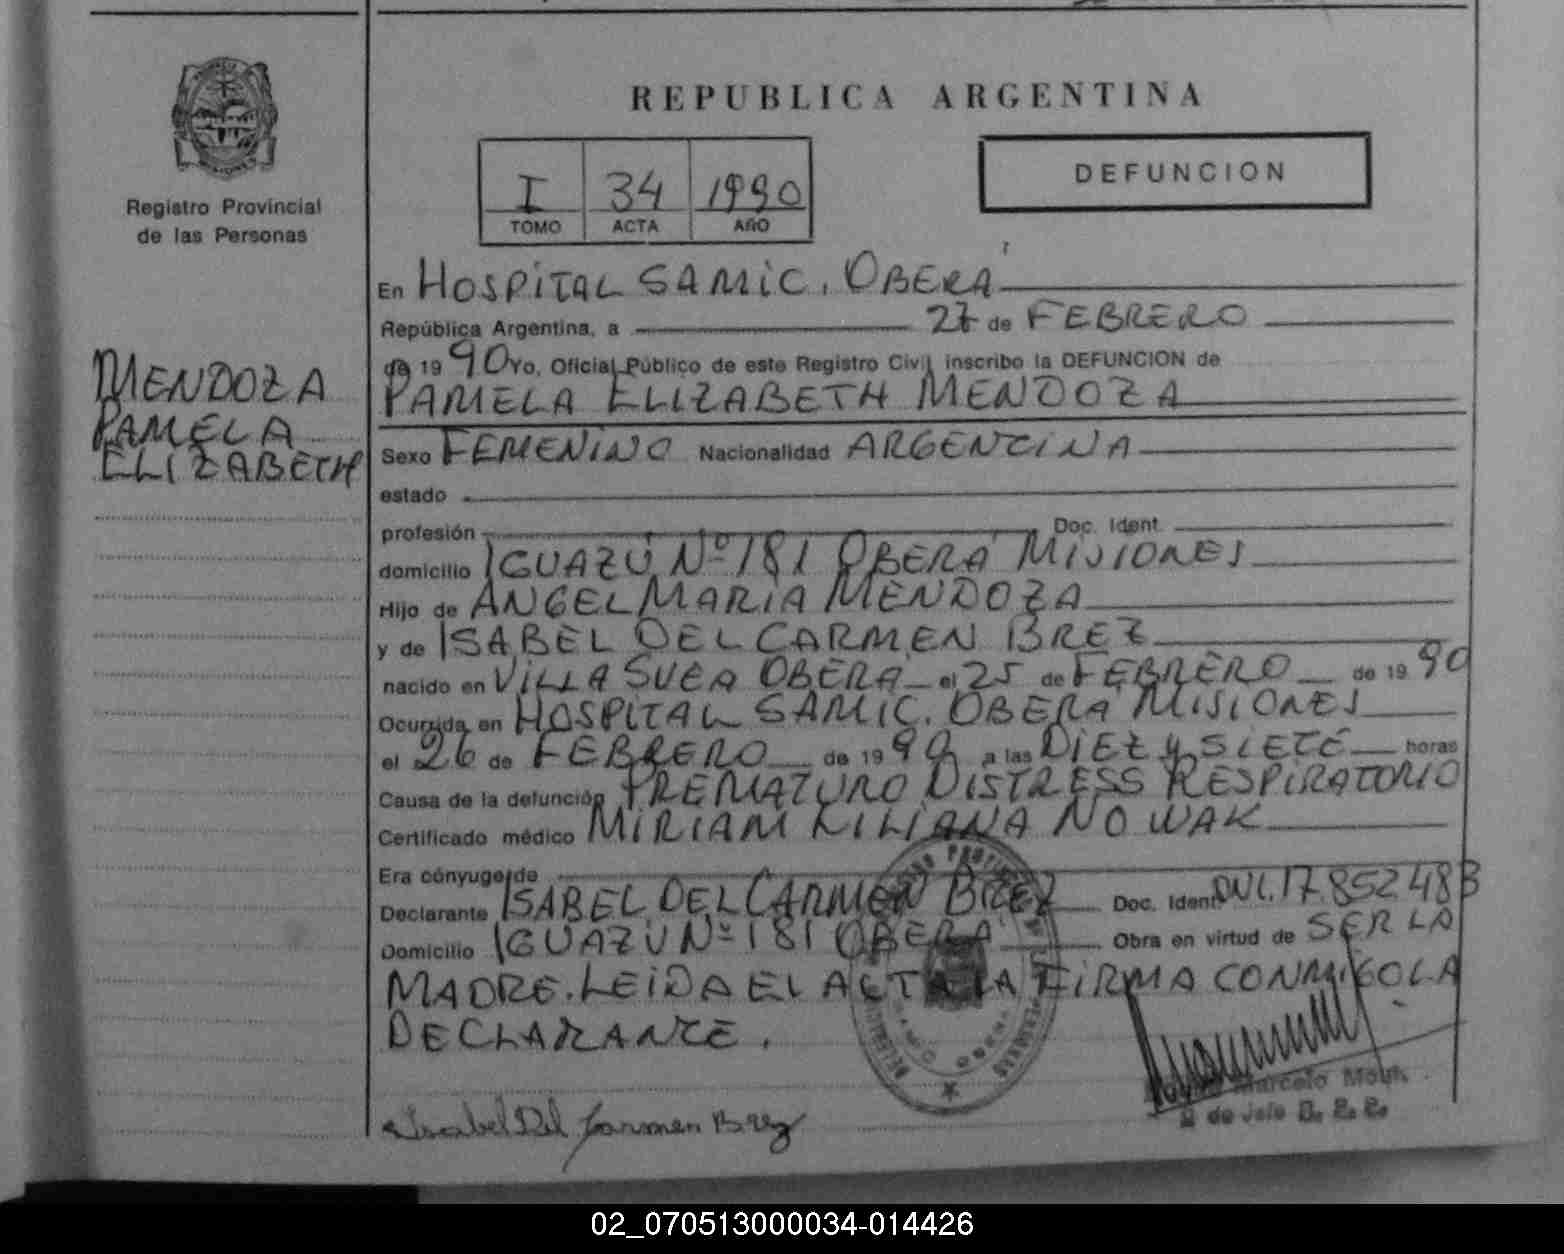 REPUBLICA ARGENTINA
Registro Provincial
de las Personas
I 34 1990
TOMO ACTA AÑO
DEFUNCION
MENDOZA
PAMELA
ELIZABETH
En HOSPITAL SAMIC. OBERÁ
República Argentina, a 27 de FEBRERO
de 1990 Yo, Oficial Público de este Registro Civil inscribo la DEFUNCION de
PAMELA ELIZABETH MENDOZA
Sexo FEMENINO Nacionalidad ARGENTINA
estado
profesión Doc. Ident.
domicilio IGUAZÚ Nº 181 OBERÁ MISIONES
Hijo de ANGEL MARIA MENDOZA
y de ISABEL DEL CARMEN BREZ
nacido en VILLA SVEA OBERÁ el 25 de FEBRERO de 1990
Ocurrida en HOSPITAL SAMIC. OBERÁ MISIONES
el 26 de FEBRERO de 1990 a las DIEZ y SIETE horas
Causa de la defunción PREMATURO DISTRESS RESPIRATORIO
Certificado médico MIRIAM LILIANA NOWAK
Era cónyuge de
Declarante ISABEL DEL CARMEN BREZ Doc. Ident. DNI. 17.852.483
Domicilio IGUAZÚ Nº 181 OBERÁ Obra en virtud de SER LA
MADRE. LEIDA EL ACTA LA FIRMA CONMIGO LA
DECLARANTE.
Isabel Del Carmen Brez
Marcelo
02_070513000034-014426